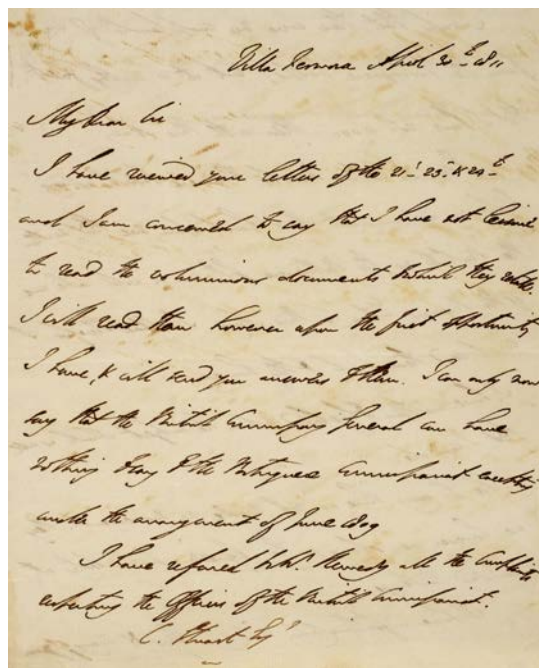 Villa Fermosa April 30th 1811
My Dear Sir
I have received your letters of the 21st 23d & 24th
and I am concerned to say that I have not leisure
to read the voluminous documents which they
I will read them however upon the first opportunity
I have, & will send you answers to them. I can only now
say that the British Commissary General can have
nothing to say to the Portuguese Commissariat excepting
under the arrangement of June 1809
I have referred to Mr. Kennedy all the Complaints
respecting the Officers of the British Commissariat.
C. Stuart Esqr